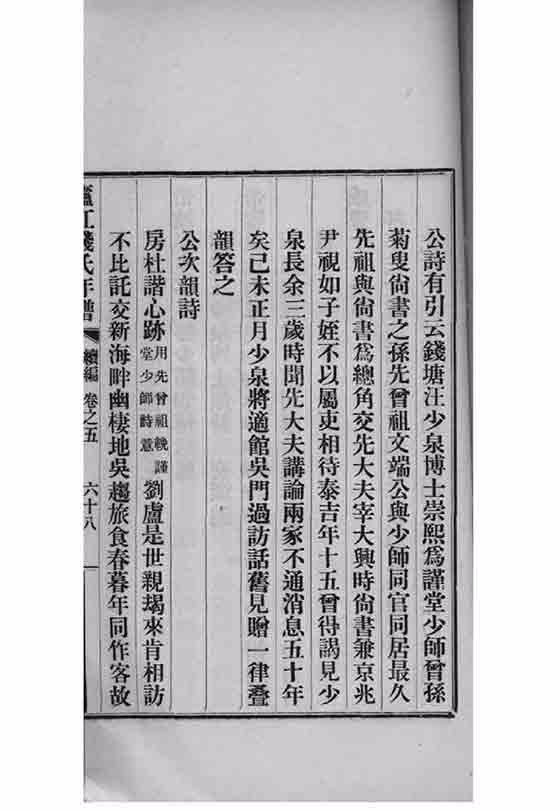 公詩有引云錢塘汪少泉博士崇熙爲謹堂少師曾孫
菊叟尙書之孫先曾祖文端公與少師同官同居最久
先祖與尙書爲總角交先大夫宰大興時尙書兼京兆
尹視如子姪不以屬吏相待泰吉年十五曾得謁見少
泉長余三歲時聞先大夫講論兩家不通消息五十年
矣己未正月少泉將適館吳門過訪話舊見贈一律疊
韻答之
公次韻詩
房杜諧心跡用先曾祖輓謹堂少師詩意劉盧是世親朅來肯相訪
不比託交新海畔幽棲地吳趨旅食春暮年同作客故
廬江錢氏年譜 續編 卷之五 六十八